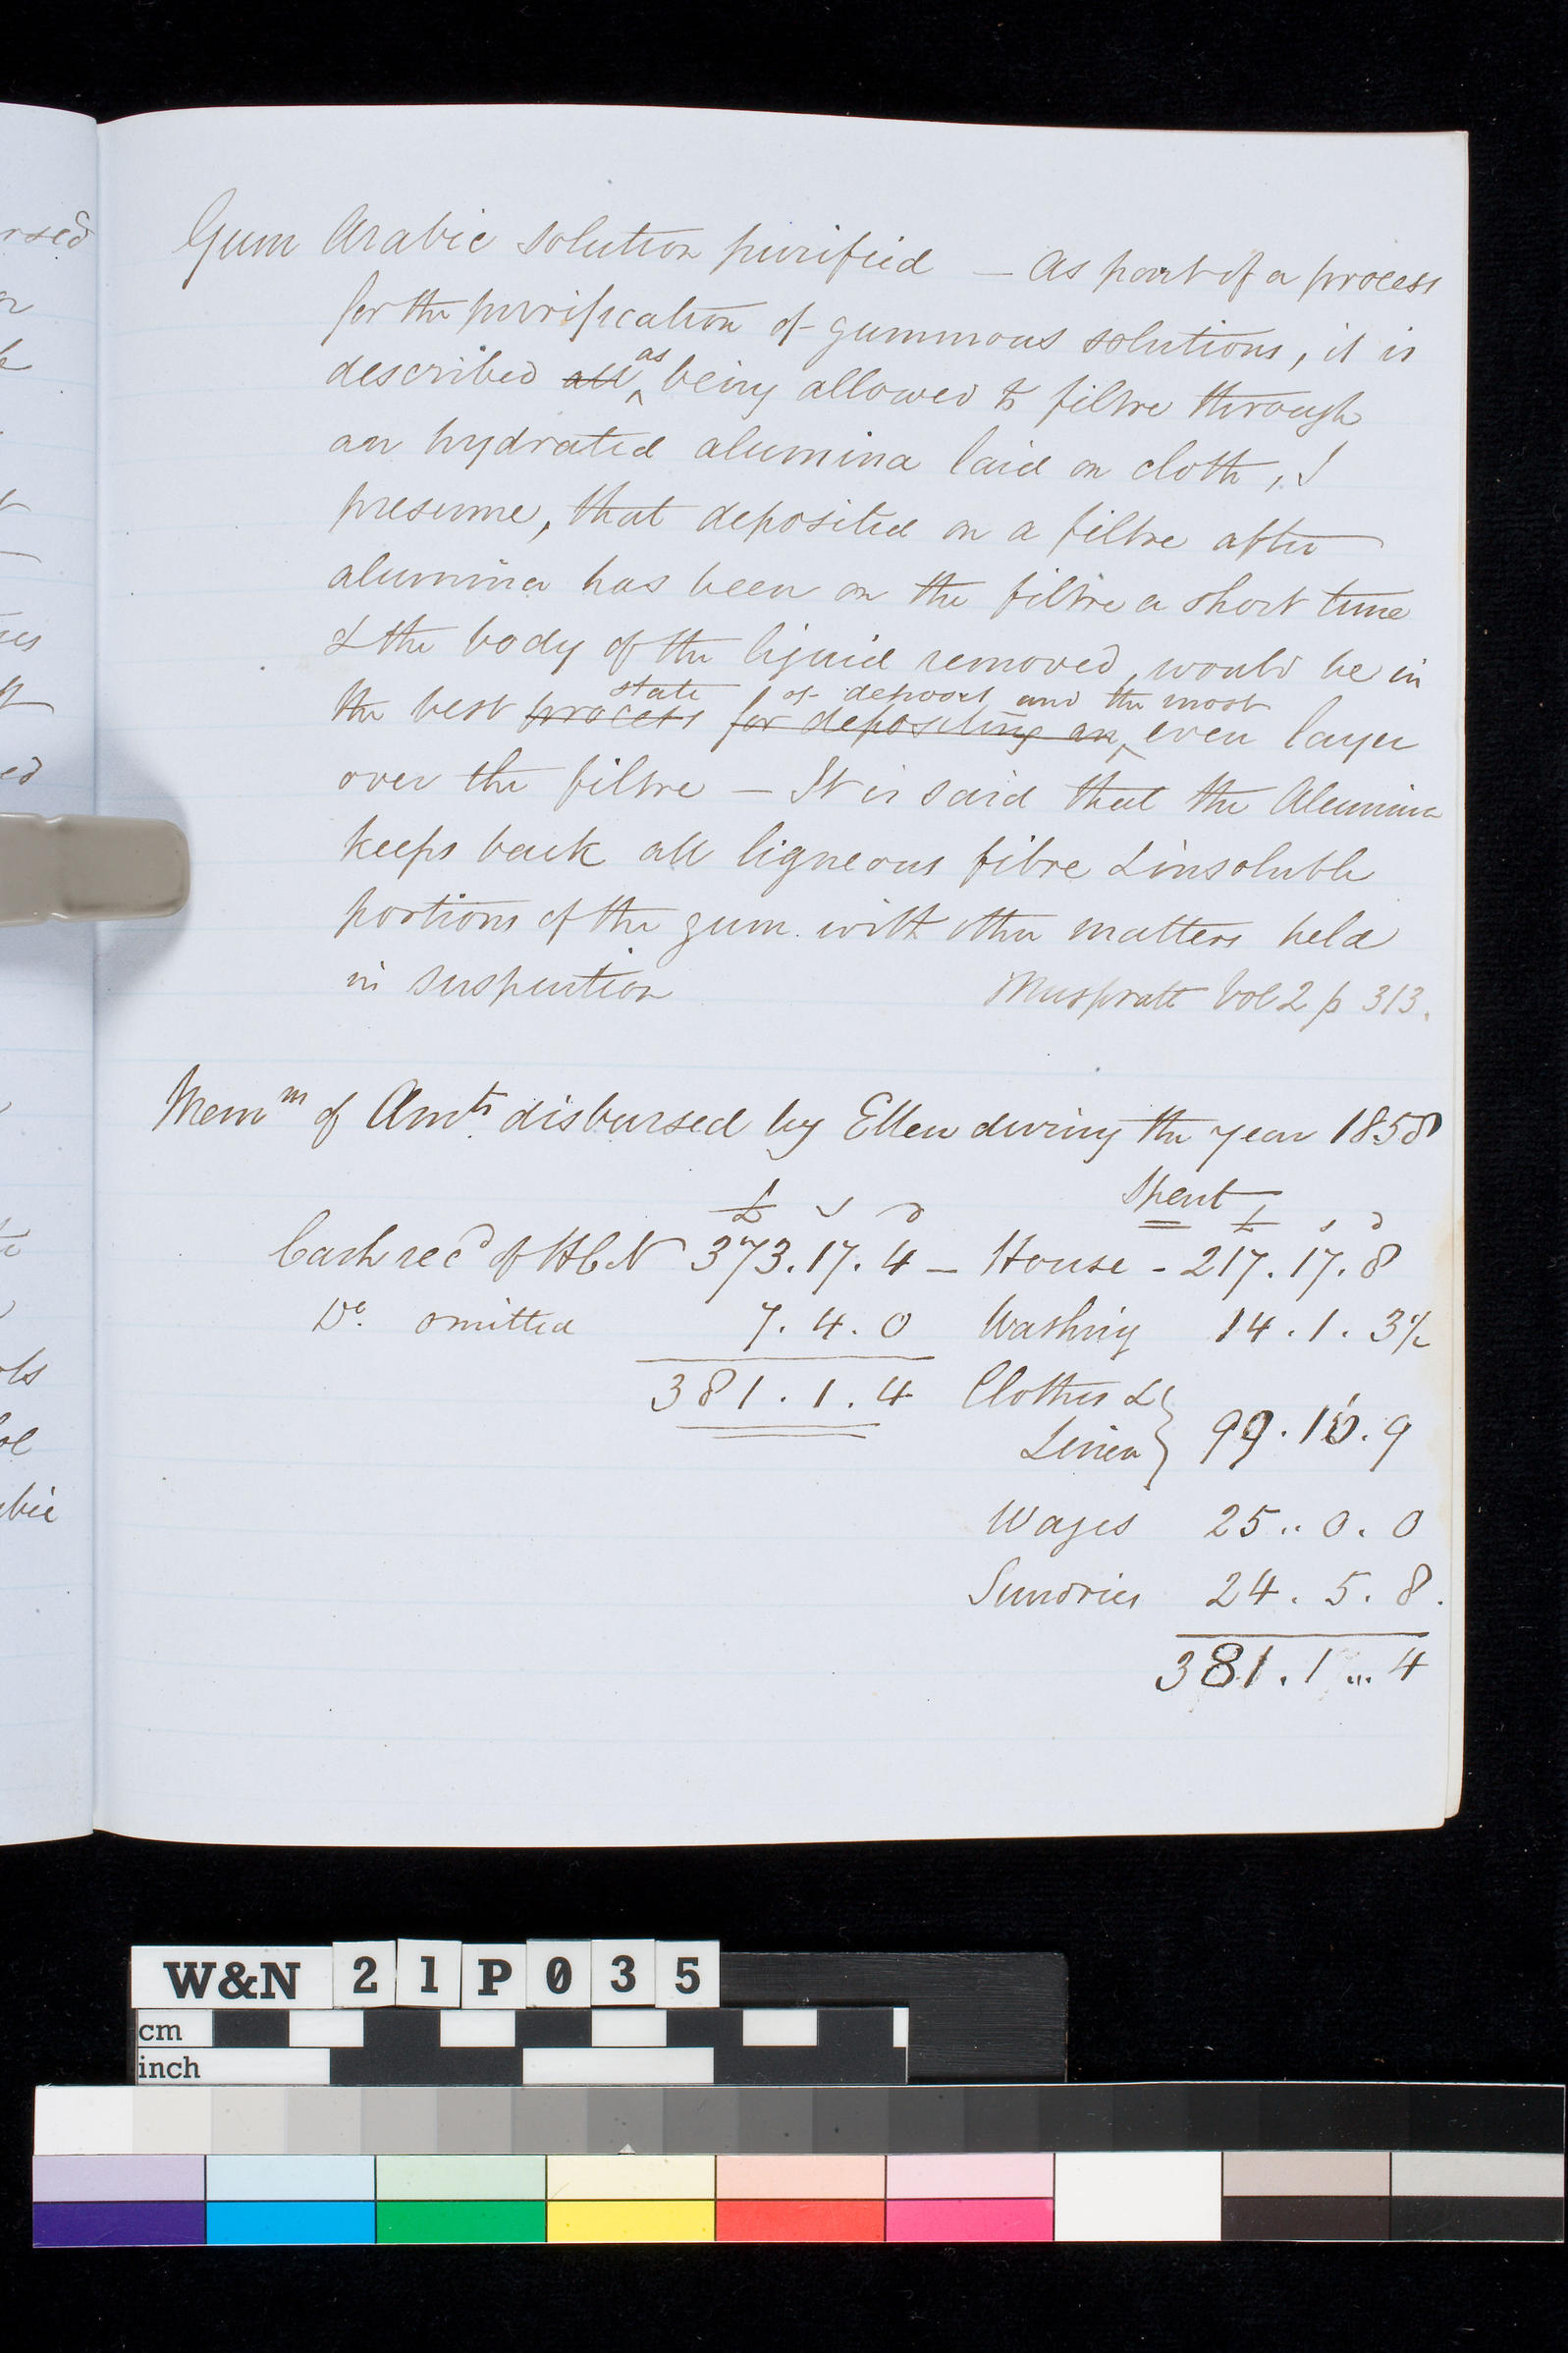 Gum Arabic solution purified — As part of a process
for the purification of gummous solutions, it is
described all as being allowed to filtre through
an hydrated alumina laid on cloth, I
presume, that deposited on a filtre after
alumina has been on the filtre a short time
& the body of the liquid removed, would be in
state of deposit and the most
the best process for depositing an even layer
over the filtre — It is said that the Alumina
keeps back all ligneous fibre & insoluble
portions of the gum with other matters held
in suspention Muspratt Vol 2 p 313.
Memm of Amts disbursed by Ellen during the year 1858
Spent
£ s d £ s d
Cash recd of HCN 373.17.4 — House - 217.17.8
Do. omitted 7.4.0 Washing 14.1.3½
381.1.4 Clothes &
Linen } 99.16.9
Wages 25..0.0
Sundries 24.5.8.
381.1...4
rsed
ed
ols
bic
W&N 21P035
cm
inch